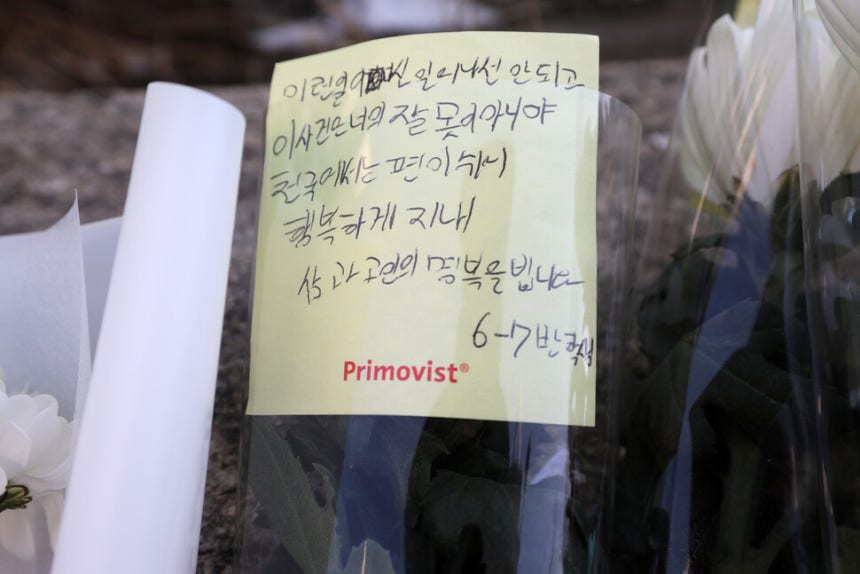 이런일이 일어나선 안되고
이사건은너의 잘못이아니야
천국에서는 편이쉬니
행복하게 지내
삼가고인의 명복을 빕니다
6-17반 학생
Primovist®